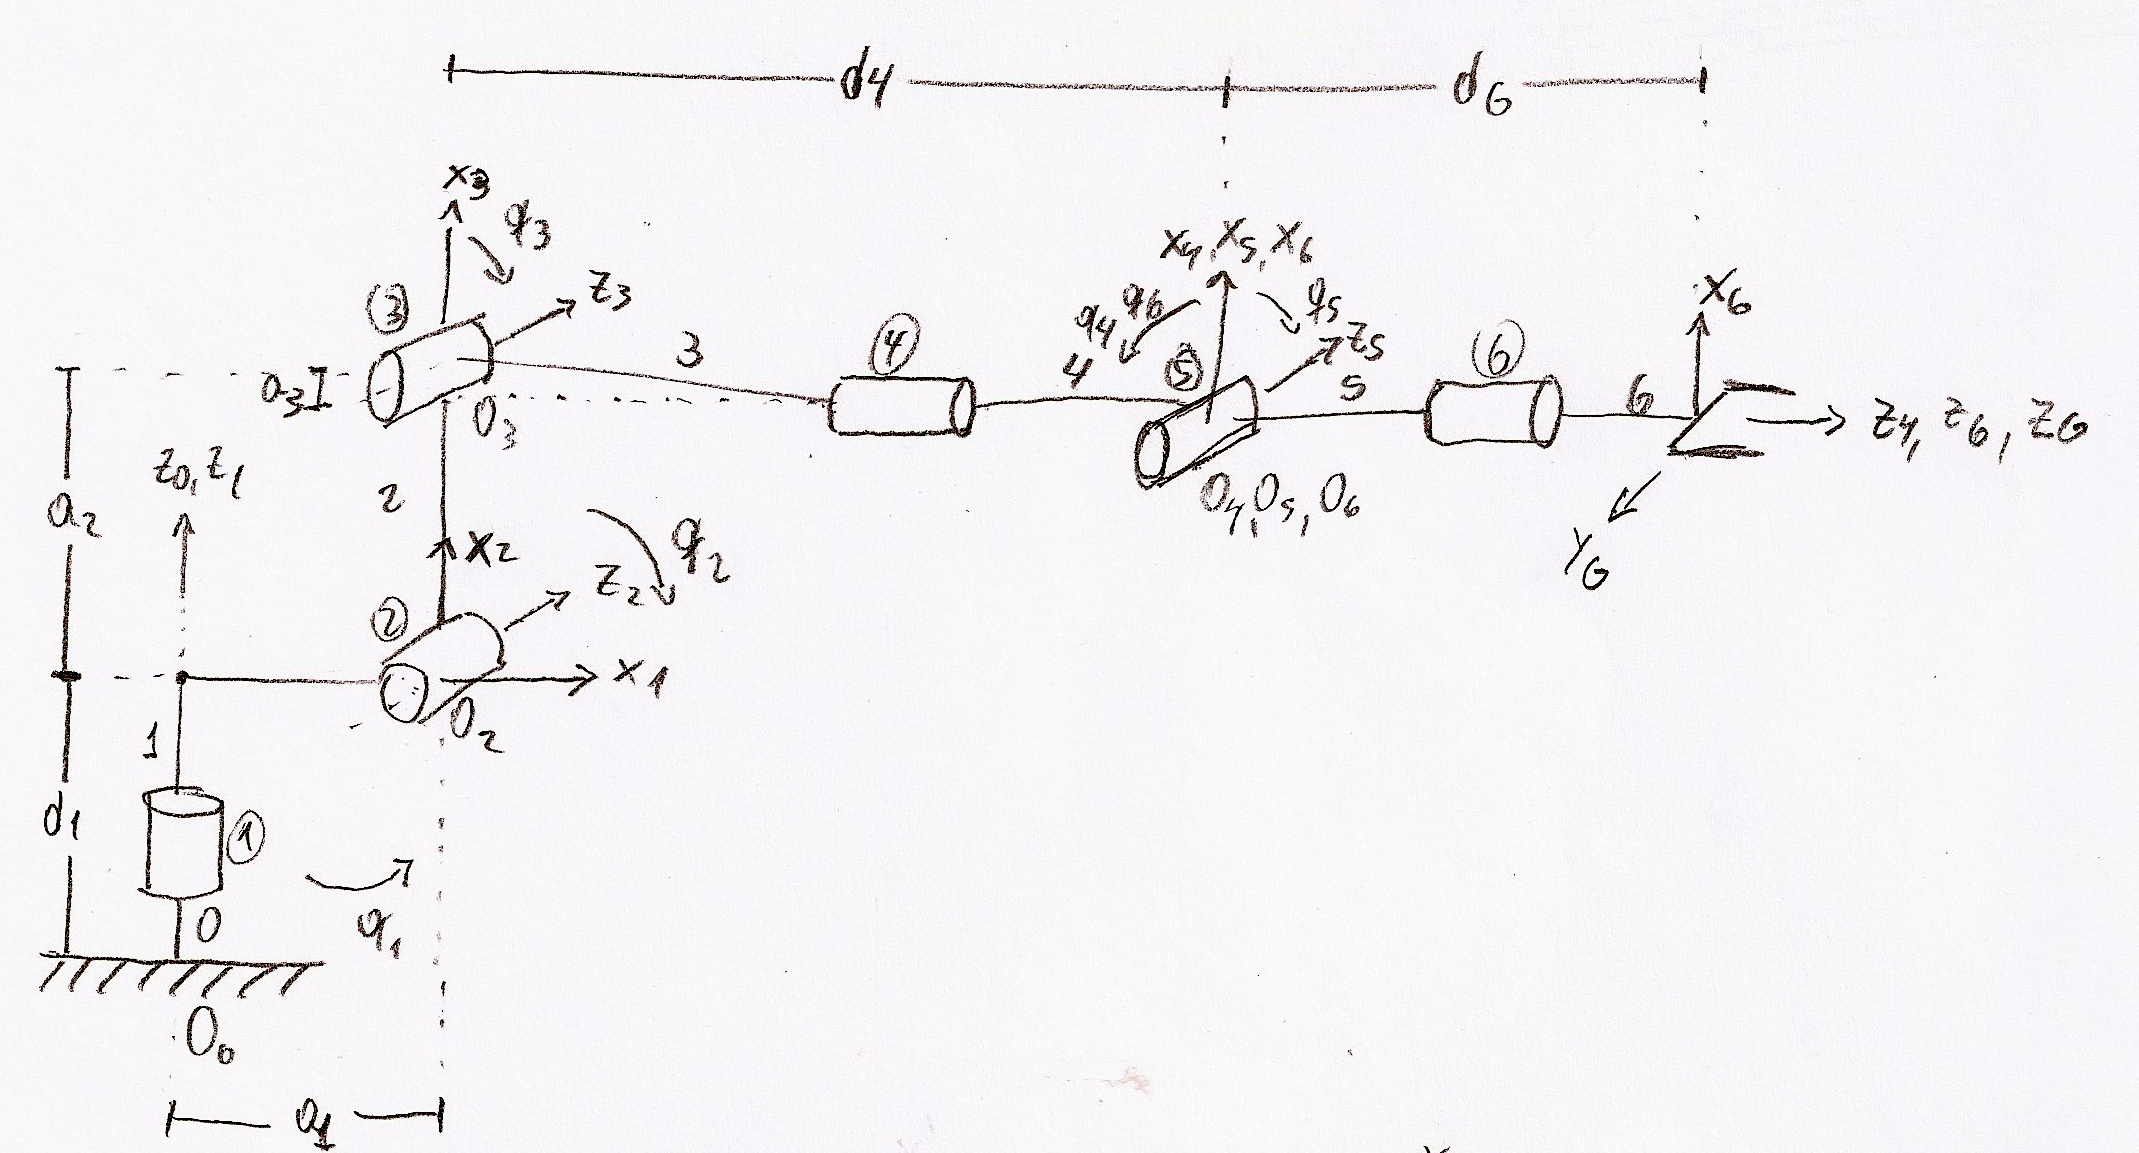 d4 dG
x3
q3
③ z3
④
3
a3
O3
x4, x5, x6
q4 q6 q5
⑤ z5
4
5
⑥
6
xG
z4, z6, zG
O4, O5, O6
yG
z0, z1
a2
2
x2
q2
z2
②
x1
O2
1
d1
①
0
q1
O0
a1